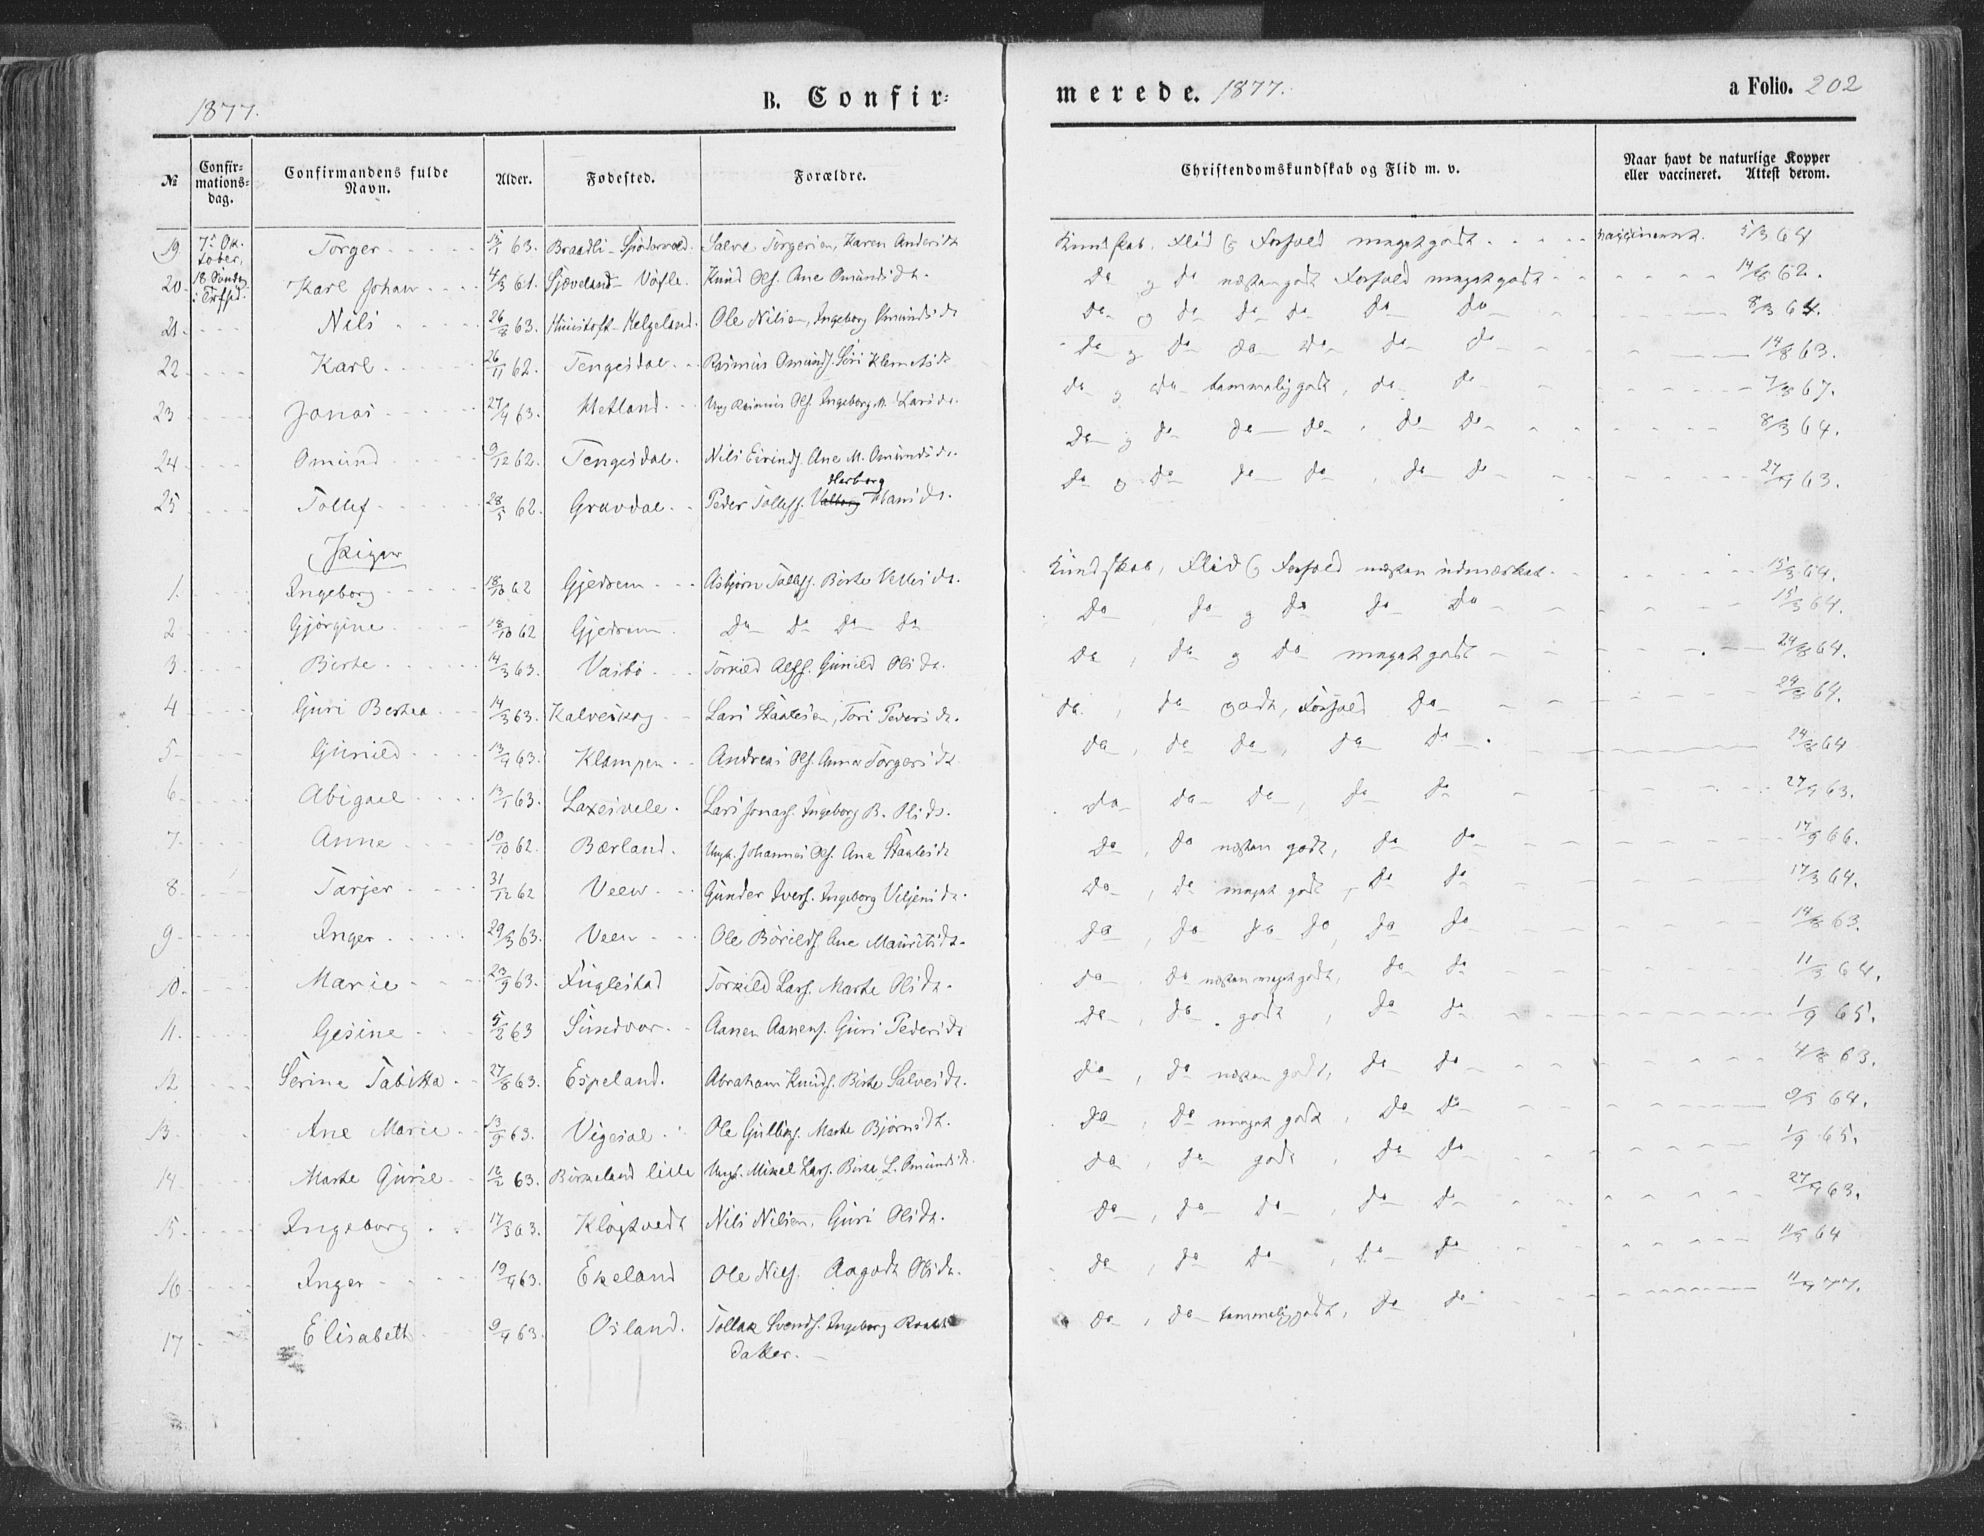 1877.
B. Confir-
merede. 1877.
a Folio. 202
№ Confir-mations-dag. Confirmandens fulde Navn. Alder. Fødested. Forældre. Christendomskundskab og Flid m. v. Naar havt de naturlige Kopper eller vaccineret. Attest derom.
19 7de Ok-tober, Torger 63. Braadli Salve Torgersen, Karen Andersdt Kundskab, Flid & Forhold meget godt vaxxineret 5/3 64
20 18 Søndag i Trefld. Karl Johan 4/3 61. Knud Ols. Ane Omundsdt. Do og do næsten godt Forhold meget godt 14/8 62.
21 Nils 26/8 63. Helgeland. Ole Nilsen, Ingeborg Omundsdt Do og do do do do do 8/3 64.
22 Karl 26/11 62. Tengesdal Rasmus Omunds. Siri Klemetsdt do og do do do do do 14/8 63.
23 Jonas 27/4 63. Hetland Ung Rasmus Ols. Ingeborg M. Larsdt. do og do temmelig godt, do do 7/8 67.
24 Omund 9/12 62. Tengesdal. Nils Eivinds. Ane M. Omundsdt. Do og do do do do do 8/3 64.
25 Tollef 28/5 62. Gravdal Peder Tollefs. Valborg Herborg Hansdt. do og do do do do do 27/9 63.
Piger
1. Ingeborg 18/10 62 Gjedrem Asbjørn Tollefs. Birte Vellesdt. Kundskab, Flid & Forhold næsten udmærket 15/3 64.
2 Gjørgine 18/10 62 Gjedrem Do do do do Do do og do do do 15/3 64.
3 Birte 14/3 63. Vasbø Torkild Alfs. Gunild Olsdt. do, do og do meget godt 24/8 64.
4 Guri Bertea 14/3 63. Kalveskog Lars Staalesen, Tori Pedersdt. do, do godt, Forhold do 24/8 64.
5 Gunild 13/4 63. Klompen Andreas Ols. Anna Torgersdt do, do do, do do 24/8 64
6 Abigael 13/1 63. Laxesvele. Lars Jonas. Ingeborg B. Olsdt. do do do, do do 27/9 63.
7. Anne 10/10 62. Bærland. Ungk. Johannes Ols. Ane Staalesdt do, do næsten godt, do do 17/9 66.
8. Tarjer 31/12 62 Veen Gunder Ivers. Ingeborg Veljensdt. do, do meget godt, do do 17/3 64.
9. Inger 29/3 63. Veen Ole Børilds. Ane Mauritsdt. do, do do do, do do 14/8 63.
10. Marie 23/9 63. Fuglestad Torkild Lars. Marte Olsdt. do, do næsten meget godt, do do 11/3 64.
11. Gesine 5/2 63 Sundvor Aanen Aanens. Guri Pedersdt do, do godt, do do 1/9 65.
12. Serine Tabitta 27/8 63. Espeland. Abraham Knuds. Birte Salvesdt. do, do næsten godt, do do 4/8 63.
13. Ane Marie 13/9 63. Vigesal Ole Gulliks. Marte Bjørnsdt. do, do meget godt, do do 9/3 64.
14. Marte Gurie 12/2 63. Birkeland lille Ungk. Mikel Lars. Birte L. Omundsdt. do, do godt, do do 1/9 65.
15 Ingeborg 17/3 63. Kløgtvedt Nils Nilsen, Guri Olsdt. do, do do, do do 27/9 63.
16 Inger 19/4 63. Ekeland Ole Nils. Aagodt Olsdt. do, do do, do do 11/9 64
17 Elisabeth 9/4 63. Osland. Tollak Svends. Ingeborg do, do temmelig godt, do do 11/9 77.
datter.